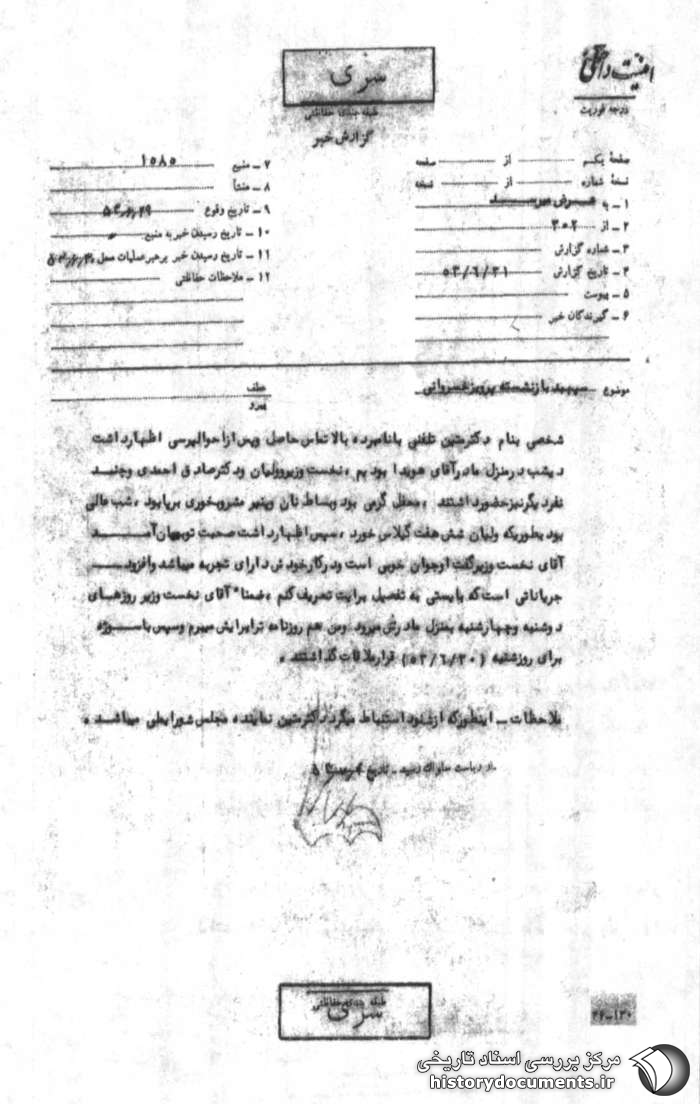 سری
طبقه بندی حفاظتی
گزارش خبر
امنیت داخلی
درجه فوریت
صفحهٔ یکم از صفحه
نسخهٔ شماره از نسخه
۱ ـ به عرض میرسد
۲ ـ از ۳۰۲
۳ ـ شماره گزارش
۴ ـ تاریخ گزارش ۵۳/۶/۳۱
۵ ـ پیوست
۶ ـ گیرندگان خبر
۷ ـ منبع ۱۰۸۵
۸ ـ منشأ
۹ ـ تاریخ وقوع
۱۰ ـ تاریخ رسیدن خبر به منبع
۱۱ ـ تاریخ رسیدن خبر برهبر عملیات محل
۱۲ ـ ملاحظات حفاظتی
موضوع سپهبد بازنشسته پرویز خسروانی
عطف
پیرو
شخصی بنام دکتر متین تلفنی با نامبرده بالا تماس حاصل و پس از احوالپرسی اظهار داشت
دیشب در منزل مادر آقای هویدا بودیم ، نخست وزیر و ولیان و دکتر صادق احمدی و چند
نفر دیگر نیز حضور داشتند ، محفل گرمی بود و بساط نان و پنیر مشروبخوری برپا بود ، شب عالی
بود بطوریکه ولیان شش هفت گیلاس خورد ، سپس اظهار داشت صحبت تو بمیان آمد
آقای نخست وزیر گفت او جوان خوبی است و در کار خودش دارای تجربه میباشد و افزود
جریاناتی است که بایستی به تفصیل برایت تعریف کنم ، ضمنا" آقای نخست وزیر روزهای
دوشنبه و چهارشنبه بمنزل مادرش میرود و من هم روزنامه ترا برایش میبرم و سپس با سوژه
برای روز شنبه (۵۳/۶/۳۰) قرار ملاقات گذاشتند .
ملاحظات ـ اینطور که از شنود استنباط میگردد دکتر متین نماینده مجلس شورایملی میباشد .
ریاست ساواک رسید ـ تاریخ
طبقه بندی حفاظتی
سری
۲۲-۱۳۰
مرکز بررسی اسناد تاریخی
historydocuments.ir